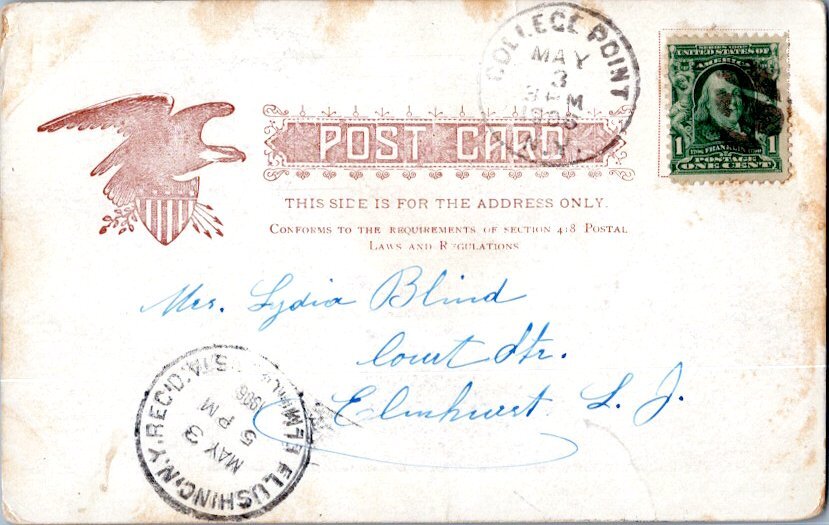 COLLEGE POINT
MAY
3
3 PM
1906
N.Y.
SERIES 1902
UNITED STATES OF
AMERICA
1 FRANKLIN 1
POSTAGE
ONE CENT
POST CARD
THIS SIDE IS FOR THE ADDRESS ONLY.
CONFORMS TO THE REQUIREMENTS OF SECTION 418 POSTAL
LAWS AND REGULATIONS
Mrs. Lydia Blind
Court Str.
Elmhurst L. I.
FLUSHING, N.Y. REC'D.
MAY 3
5 PM
1906